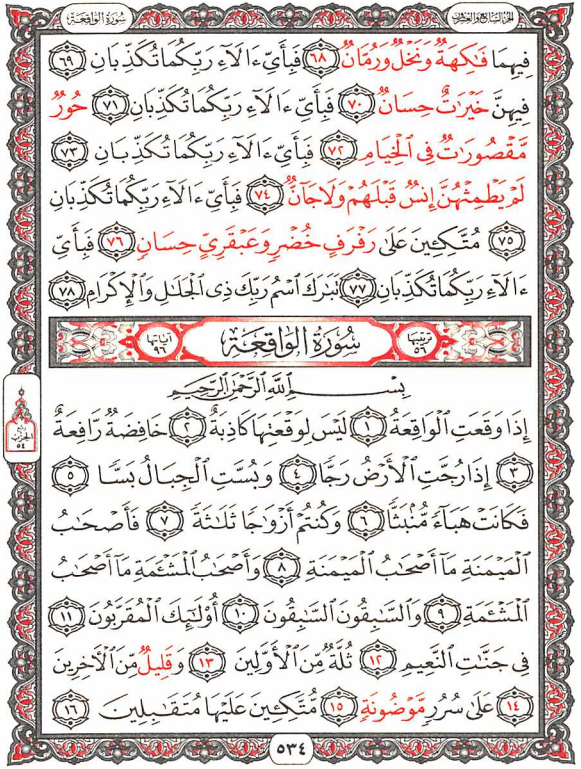 سُورَةُ الْوَاقِعَةِ الجزء السابع والعشرون
فِيهِمَا فَٰكِهَةٌ وَنَخْلٌ وَرُمَّانٌ ٦٨ فَبِأَيِّ ءَالَآءِ رَبِّكُمَا تُكَذِّبَانِ ٦٩
فِيهِنَّ خَيْرَٰتٌ حِسَانٌ ٧٠ فَبِأَيِّ ءَالَآءِ رَبِّكُمَا تُكَذِّبَانِ ٧١ حُورٌ
مَّقْصُورَٰتٌ فِي ٱلْخِيَامِ ٧٢ فَبِأَيِّ ءَالَآءِ رَبِّكُمَا تُكَذِّبَانِ ٧٣
لَمْ يَطْمِثْهُنَّ إِنسٌ قَبْلَهُمْ وَلَا جَآنٌّ ٧٤ فَبِأَيِّ ءَالَآءِ رَبِّكُمَا تُكَذِّبَانِ
٧٥ مُتَّكِـِٔينَ عَلَىٰ رَفْرَفٍ خُضْرٍ وَعَبْقَرِيٍّ حِسَانٍ ٧٦ فَبِأَيِّ
ءَالَآءِ رَبِّكُمَا تُكَذِّبَانِ ٧٧ تَبَٰرَكَ ٱسْمُ رَبِّكَ ذِي ٱلْجَلَٰلِ وَٱلْإِكْرَامِ ٧٨
ترتيبها ٥٦ سُورَةُ الْوَاقِعَةِ آياتها ٩٦
بِسْمِ ٱللَّهِ ٱلرَّحْمَٰنِ ٱلرَّحِيمِ
إِذَا وَقَعَتِ ٱلْوَاقِعَةُ ١ لَيْسَ لِوَقْعَتِهَا كَاذِبَةٌ ٢ خَافِضَةٌ رَّافِعَةٌ
٣ إِذَا رُجَّتِ ٱلْأَرْضُ رَجًّا ٤ وَبُسَّتِ ٱلْجِبَالُ بَسًّا ٥
فَكَانَتْ هَبَآءً مُّنۢبَثًّا ٦ وَكُنتُمْ أَزْوَٰجًا ثَلَٰثَةً ٧ فَأَصْحَٰبُ
ٱلْمَيْمَنَةِ مَآ أَصْحَٰبُ ٱلْمَيْمَنَةِ ٨ وَأَصْحَٰبُ ٱلْمَشْـَٔمَةِ مَآ أَصْحَٰبُ
ٱلْمَشْـَٔمَةِ ٩ وَٱلسَّٰبِقُونَ ٱلسَّٰبِقُونَ ١٠ أُو۟لَٰٓئِكَ ٱلْمُقَرَّبُونَ ١١
فِي جَنَّٰتِ ٱلنَّعِيمِ ١٢ ثُلَّةٌ مِّنَ ٱلْأَوَّلِينَ ١٣ وَقَلِيلٌ مِّنَ ٱلْءَاخِرِينَ
١٤ عَلَىٰ سُرُرٍ مَّوْضُونَةٍ ١٥ مُّتَّكِـِٔينَ عَلَيْهَا مُتَقَٰبِلِينَ ١٦
٥٣٤